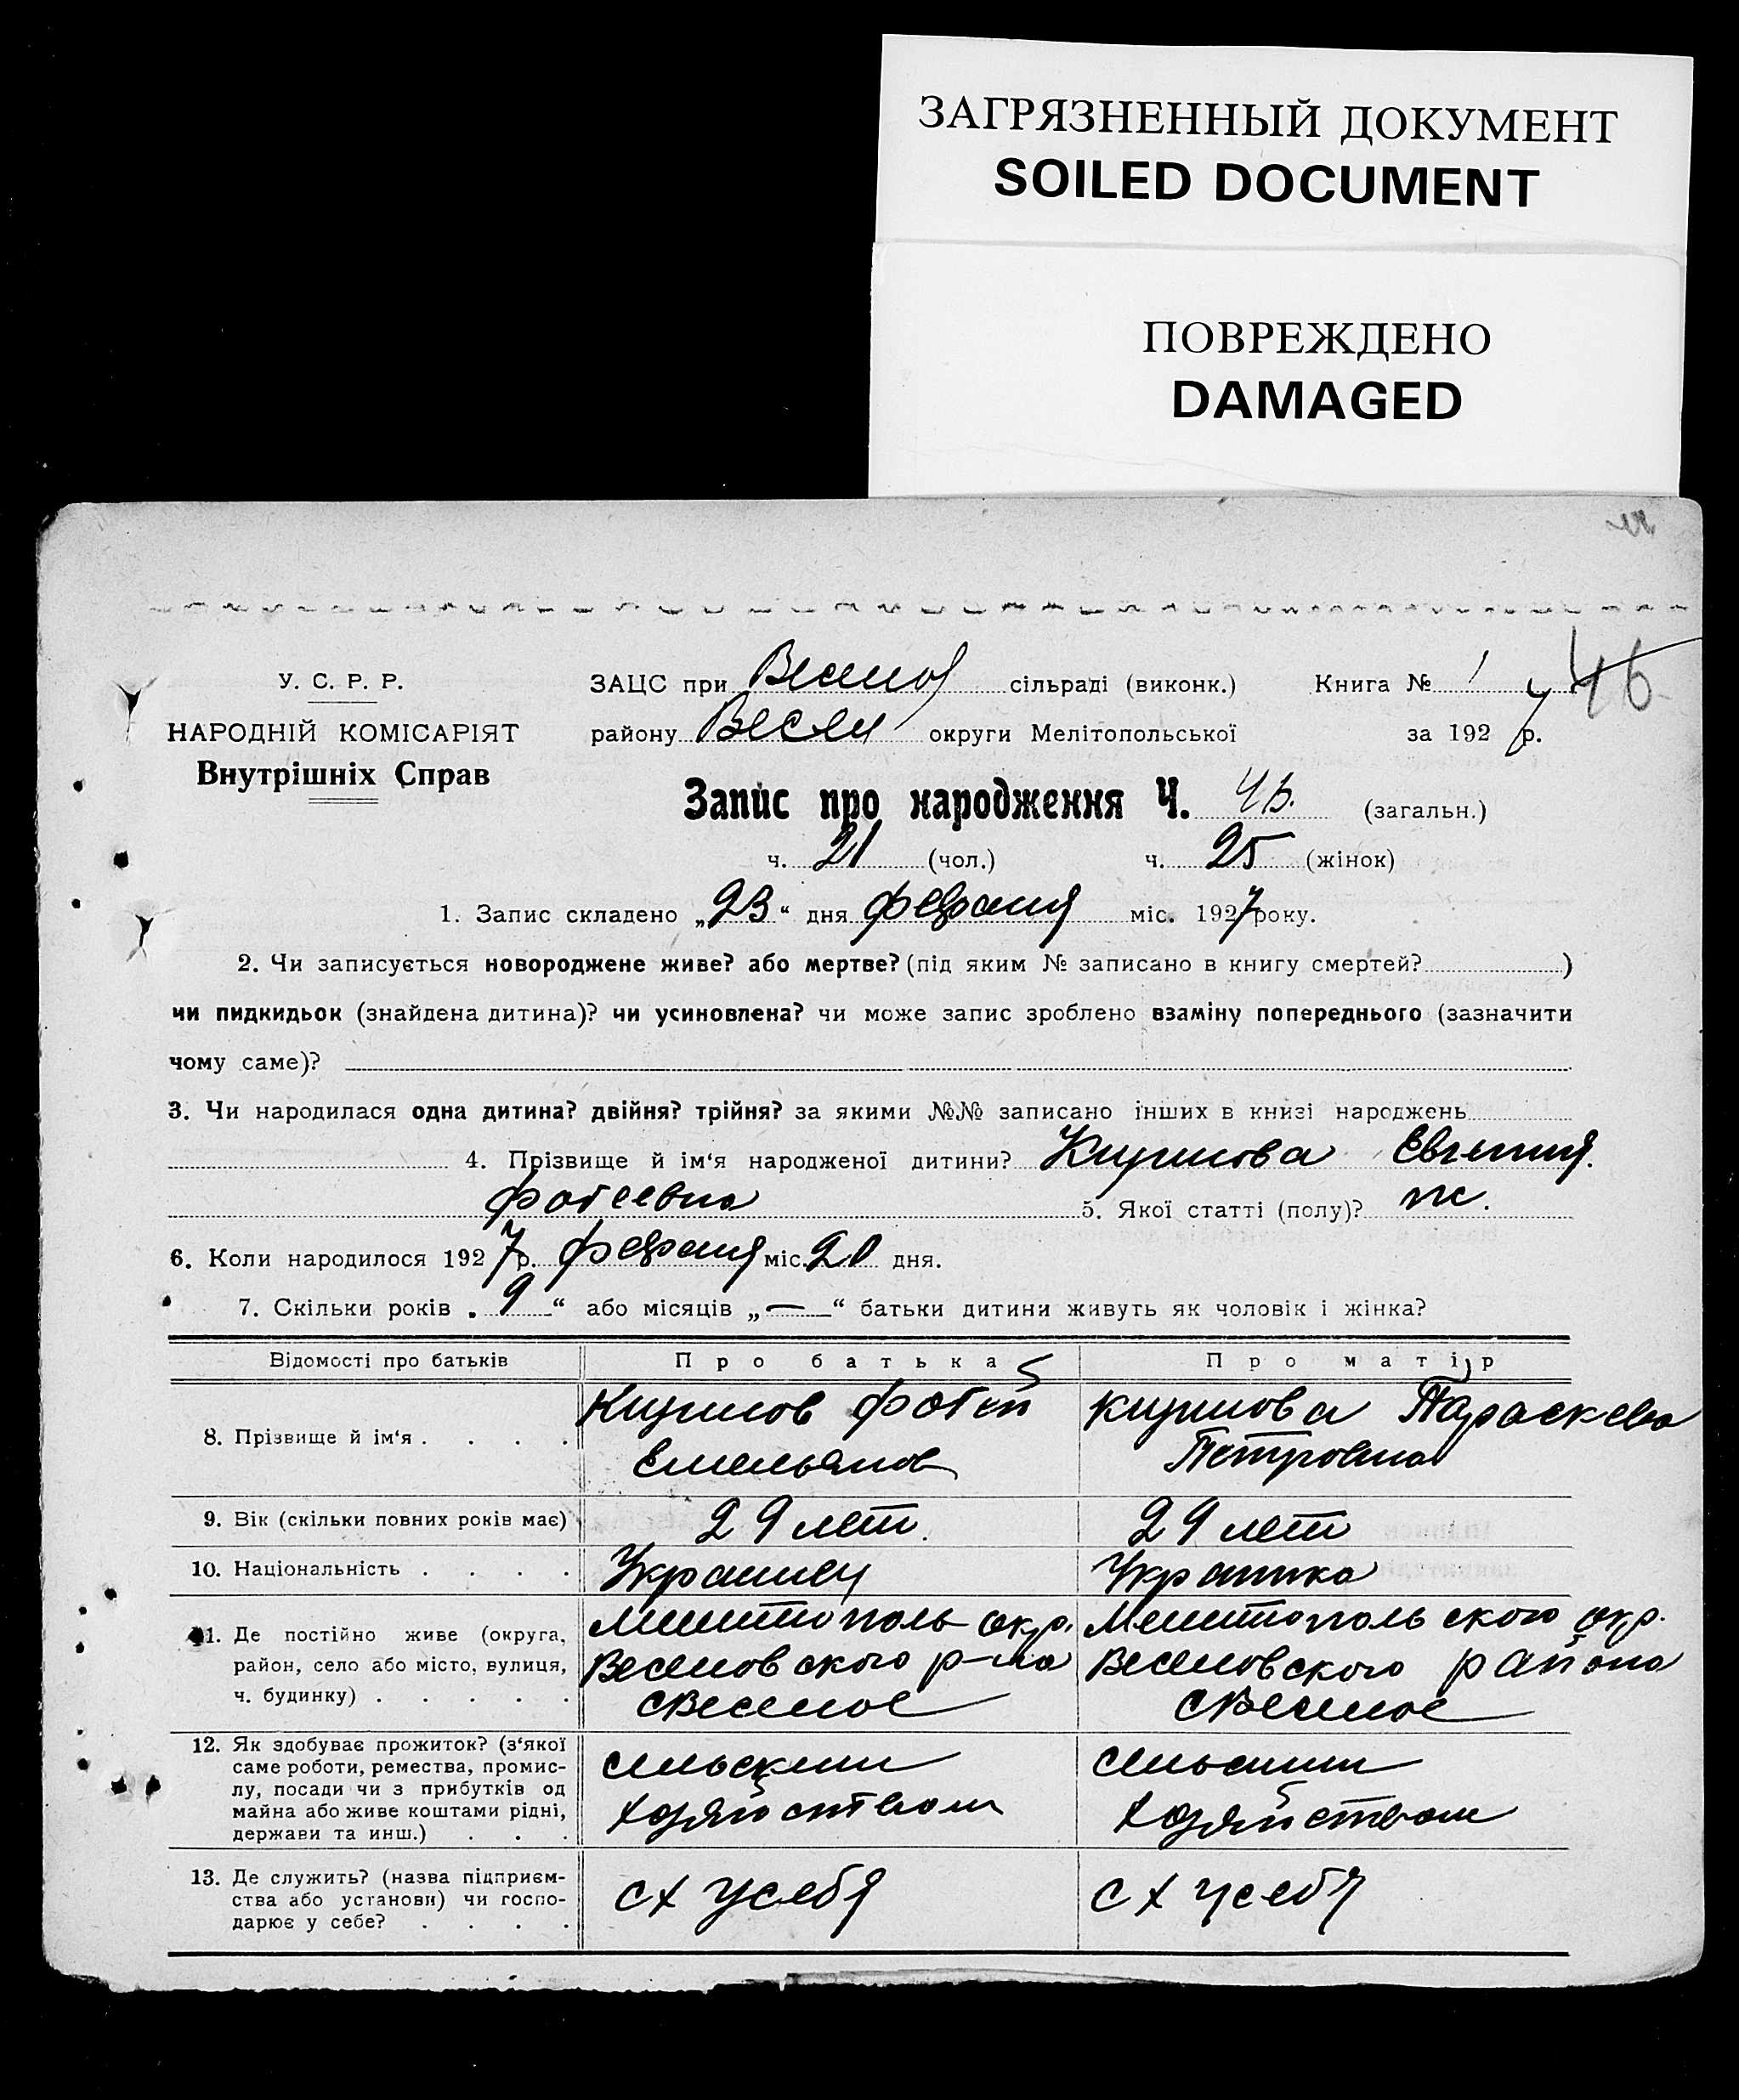 ЗАГРЯЗНЕННЫЙ ДОКУМЕНТ
SOILED DOCUMENT
ПОВРЕЖДЕНО
DAMAGED
46
У. С. Р. Р.
НАРОДНІЙ КОМІСАРІЯТ
Внутрішніх Справ
ЗАЦС при Весел сільраді (виконк.) Книга № 1
району Весел округи Мелітопольської за 1927 р.
Запис про народження Ч. 46. (загальн.)
ч. 21 (чол.) ч. 25 (жінок)
1. Запис складено „23“ дня февраля міс. 1927 року.
2. Чи записується новороджене живе? або мертве? (під яким № записано в книгу смертей? )
чи пидкидьок (знайдена дитина)? чи усиновлена? чи може запис зроблено взаміну попереднього (зазначити
чому саме)?
3. Чи народилася одна дитина? двійня? трійня? за якими №№ записано інших в книзі народжень
4. Прізвище й ім‘я народженої дитини? Кирилова Евгения.
Фотеевна 5. Якої статті (полу)? ж.
6. Коли народилося 1927 р. февраля міс. 20 дня.
7. Скільки років „9“ або місяців „—“ батьки дитини живуть як чоловік і жінка?
Відомості про батьків Про батька Про матір
8. Прізвище й ім‘я . . . . Кирилов Фотей Кирилова Параскева
Емельянов Петровна
9. Вік (скільки повних років має) 29 лет. 29 лет
10. Національність . . . . Украинец Украинка
11. Де постійно живе (округа, Мелитополь окр. Мелитопольского окр.
район, село або місто, вулиця, Веселовского р-на Веселовского района
ч. будинку) . . . . . с Веселое с Веселое
12. Як здобуває прожиток? (з‘якої
саме роботи, ремества, промис- сельским сельским
лу, посади чи з прибутків од
майна або живе коштами рідні, хозяйством хозяйством
держави та инш.) . . .
13. Де служить? (назва підприєм-
ства або установи) чи госпо- с х у себя с х у себя
дарює у себе? . . . .